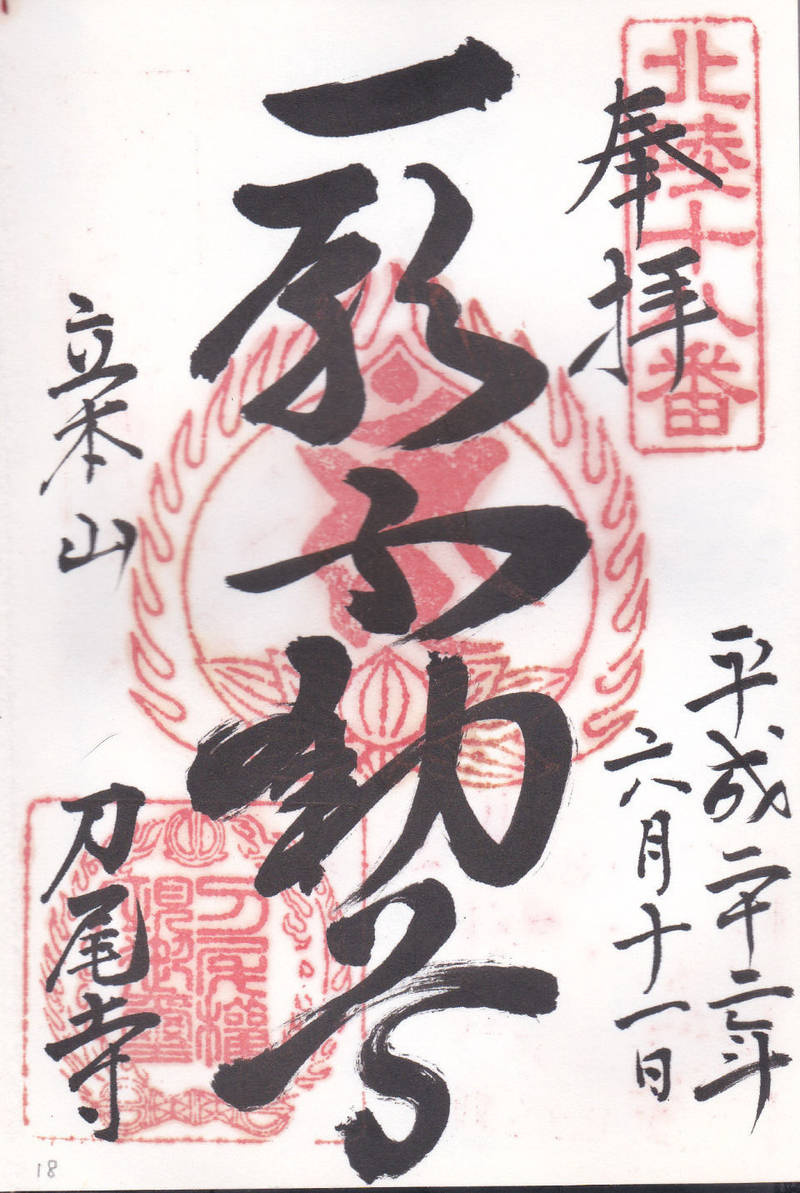 北陸十八番
奉拝
平成二十二年
六月十一日
一願不動尊
立本山
刀尾寺
18